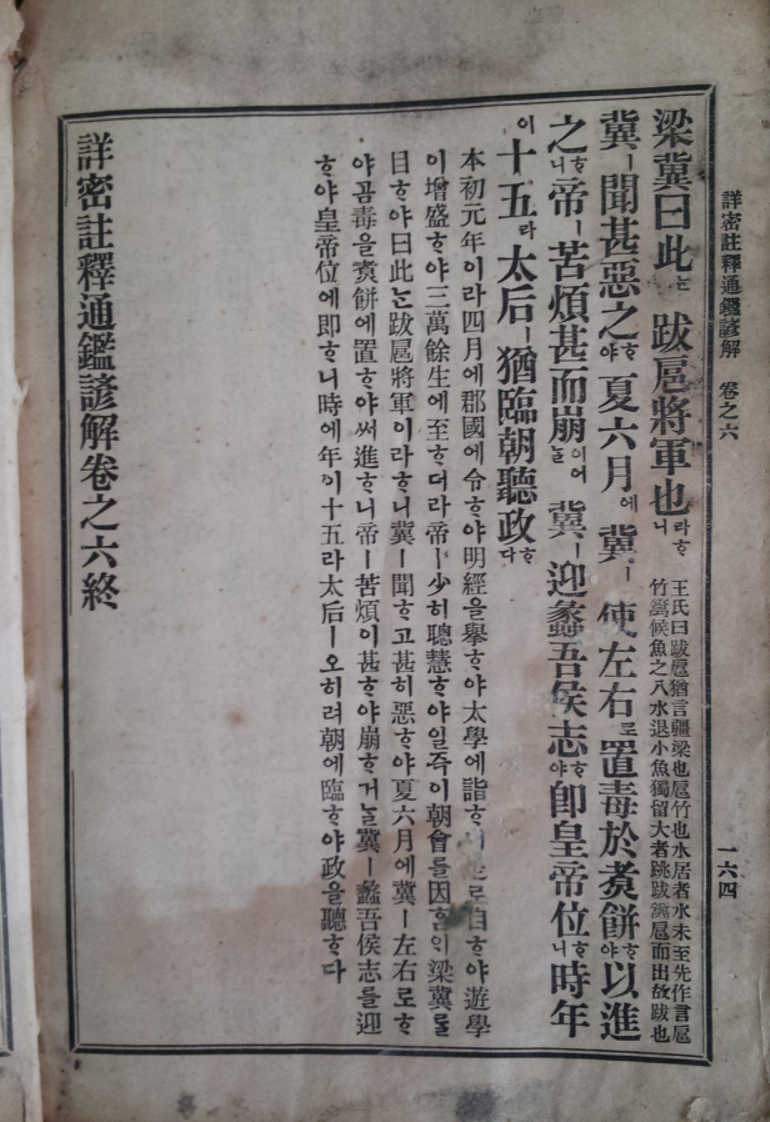 詳密註釋通鑑諺解 卷之六
一六四
梁冀曰此ᄂᆞᆫ 跋扈將軍也라ᄒᆞ니
王氏曰跋扈猶言彊梁也扈竹也水居者水未至先作言扈
竹籬候魚之入水退小魚獨留大者跳跋扈而出故跋也
冀ㅣ聞甚惡之ᄒᆞ야 夏六月에 冀ㅣ 使左右로置毒於煑餠ᄒᆞ야以進
之ᄒᆞ니帝ㅣ苦煩甚而崩이어ᄂᆞᆯ 冀ㅣ迎蠡吾侯志ᄒᆞ야卽皇帝位ᄒᆞ니時年
이十五라 太后ㅣ猶臨朝聽政ᄒᆞ다
本初元年이라四月에郡國에令ᄒᆞ야明經을擧ᄒᆞ야太學에詣ᄒᆞ 自ᄒᆞ야遊學
이增盛ᄒᆞ야三萬餘生에至ᄒᆞ더라帝ㅣ少히聰慧ᄒᆞ야일즉이朝會를因ᄒᆞ 梁冀를
目ᄒᆞ야曰此ᄂᆞᆫ跋扈將軍이라ᄒᆞ니冀ㅣ聞ᄒᆞ고甚히惡ᄒᆞ야夏六月에冀ㅣ左右로ᄒᆞ
야곰毒을煑餠에置ᄒᆞ야써進ᄒᆞ니帝ㅣ苦煩이甚ᄒᆞ야崩ᄒᆞ거ᄂᆞᆯ冀ㅣ蠡吾侯志를迎
ᄒᆞ야皇帝位에即ᄒᆞ니時에年이十五라太后ㅣ오히려朝에臨ᄒᆞ야政을聽ᄒᆞ다
詳密註釋通鑑諺解卷之六終